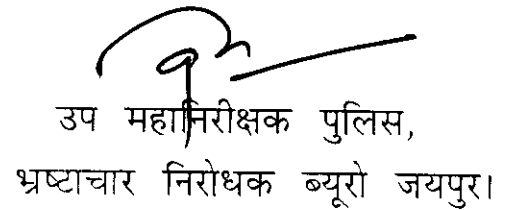 उप महानिरीक्षक पुलिस,
भ्रष्टाचार निरोधक ब्यूरो जयपुर।